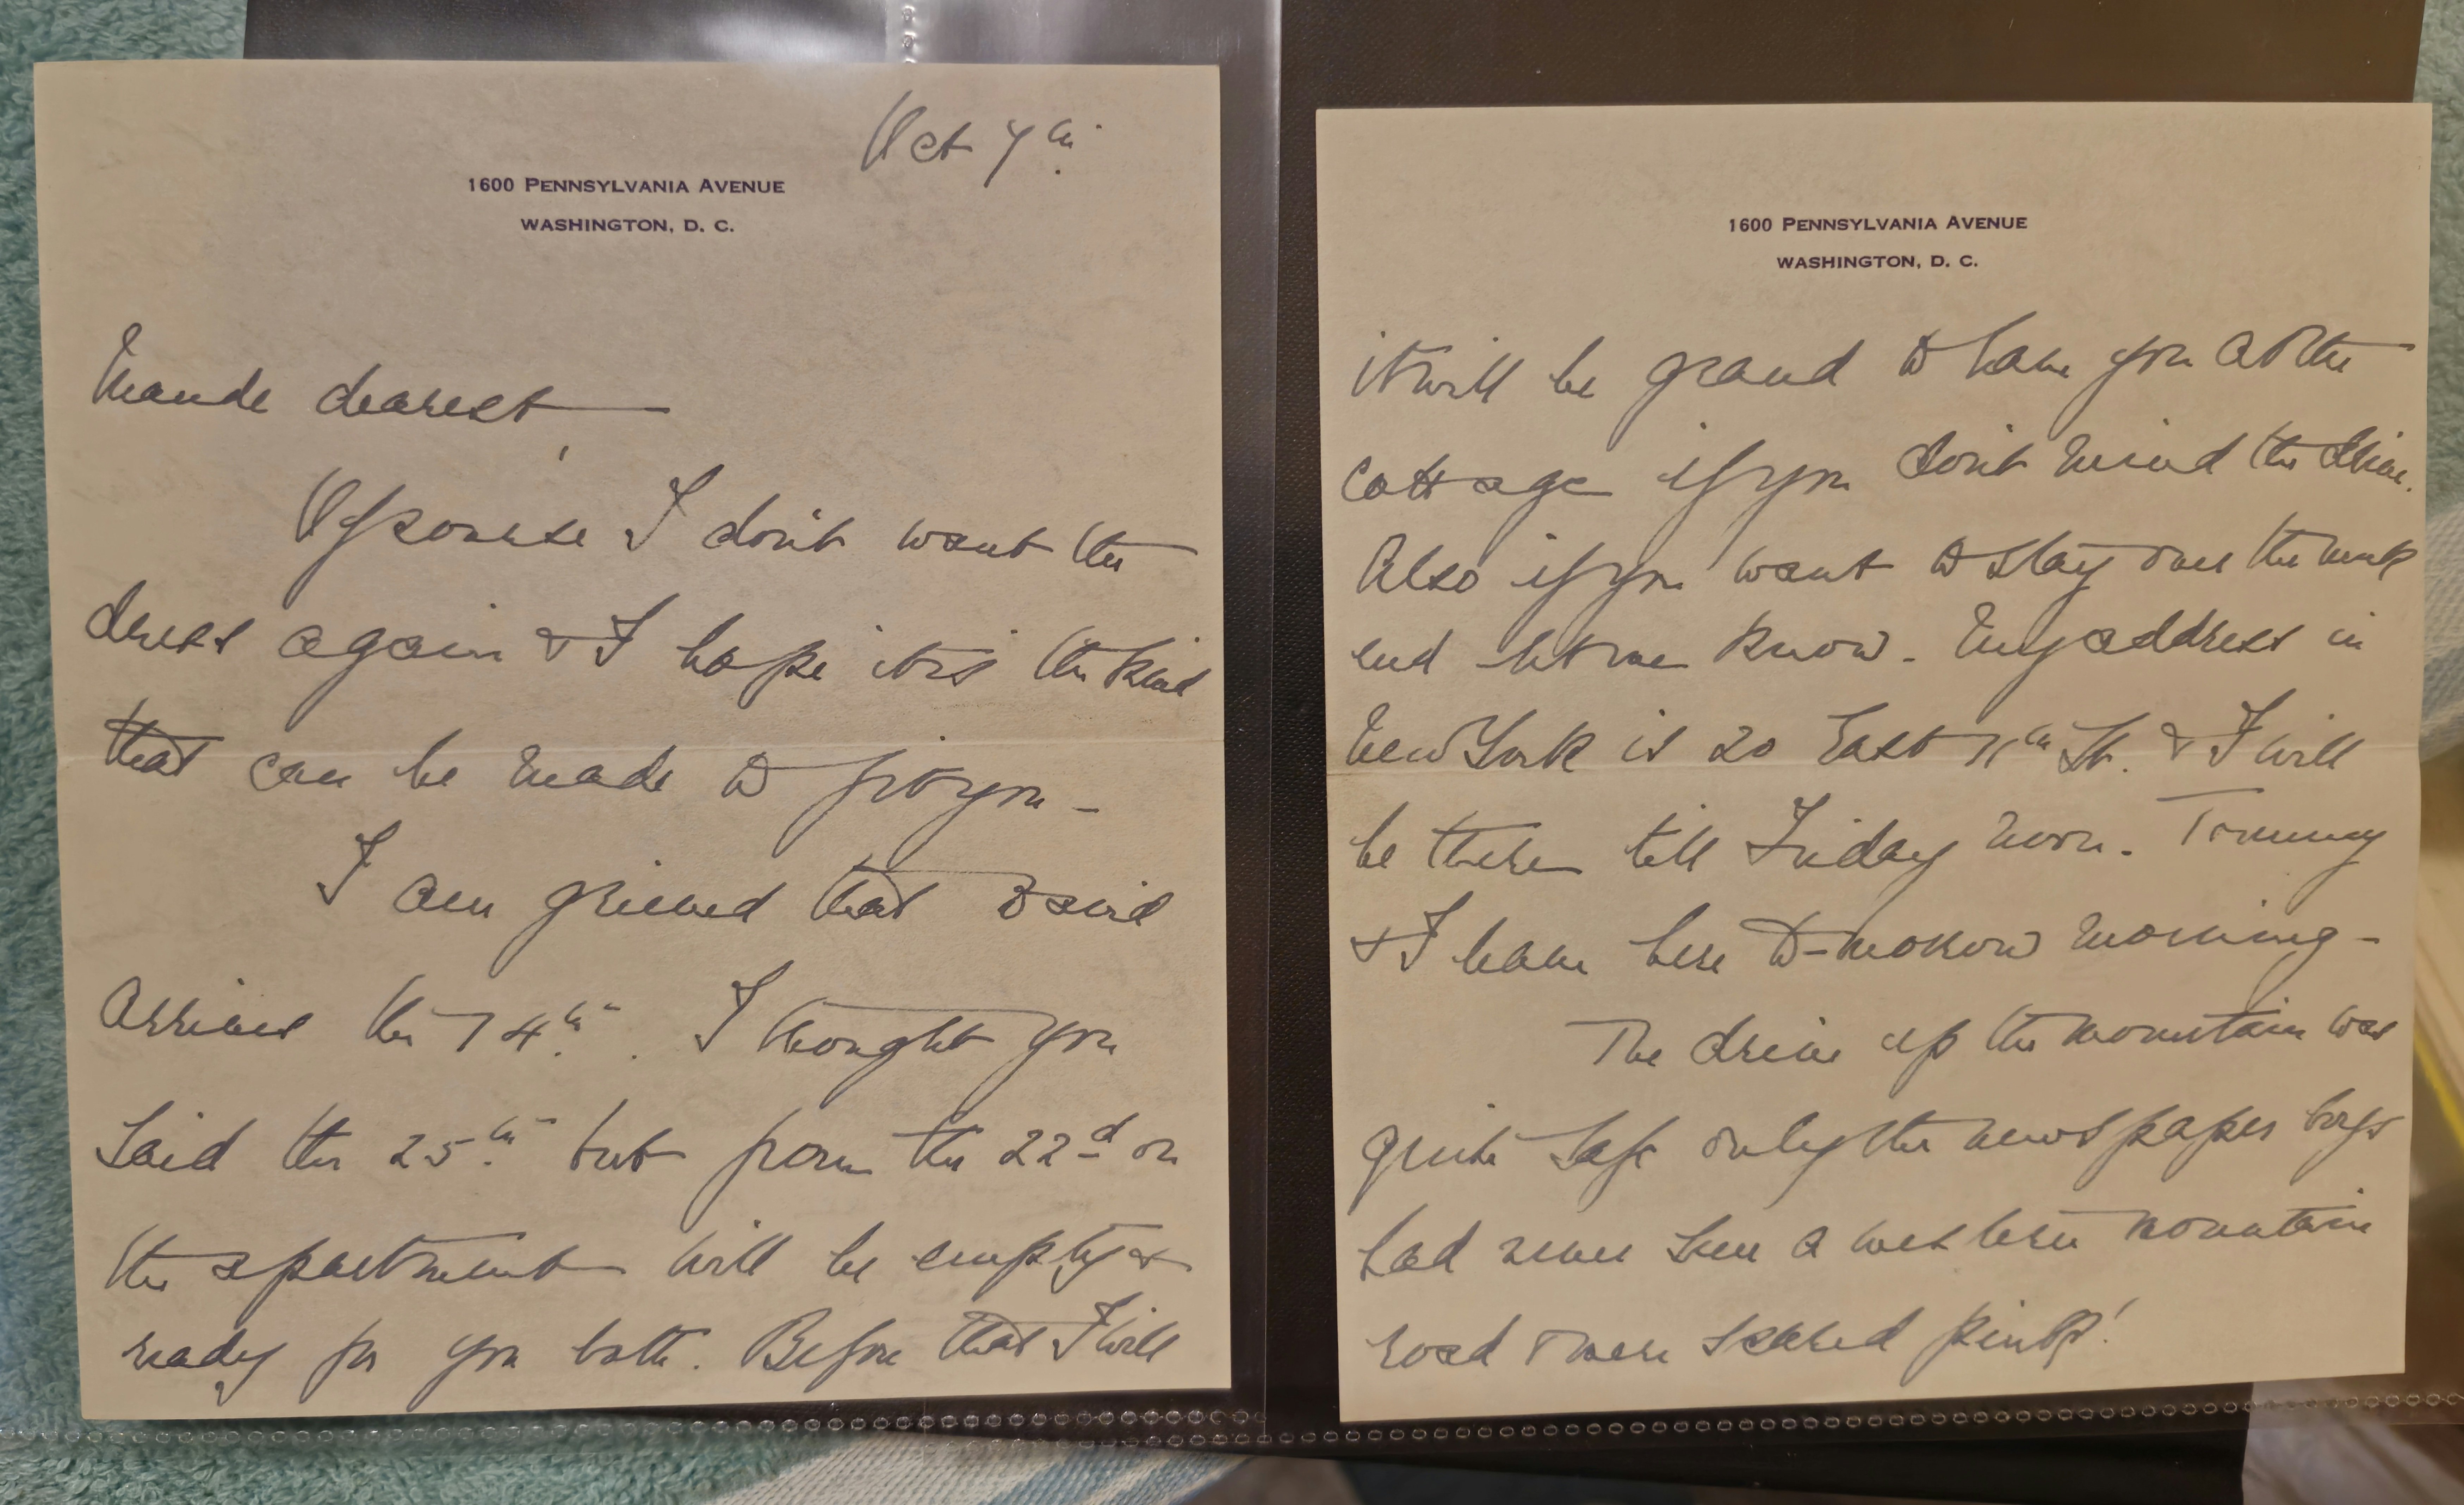 Oct 7th.
1600 PENNSYLVANIA AVENUE
WASHINGTON, D. C.
Maude dearest,
Of course I don't want the
dress again & I hope it is the kind
that can be made to fit you -
I am grieved that David
arrives the 14th. I thought you
said the 25th. but from the 22d on
the apartment will be empty &
ready for you both. Before that I will
1600 PENNSYLVANIA AVENUE
WASHINGTON, D. C.
it will be grand to have you at the
cottage if you don't mind the drive.
Also if you want to stay over the week
end let me know. My address in
New York is 20 East 11th St. & I will
be there till Friday noon. Tommy
& I leave here to-morrow morning -
The drive up the mountain was
quite safe only the newspaper boys
had never seen a western mountain
road & were scared pink!